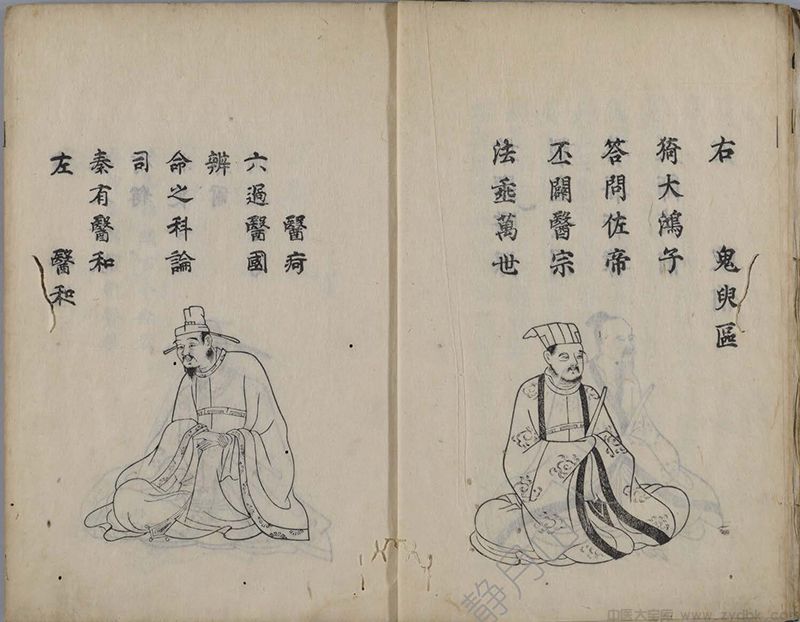 右 鬼臾區
猗大鴻子
答問佐帝
丕闢醫宗
法垂萬世
左 醫和
秦有醫和
司
命之科論
辨
六過醫國
醫疴
www.zydbk.com